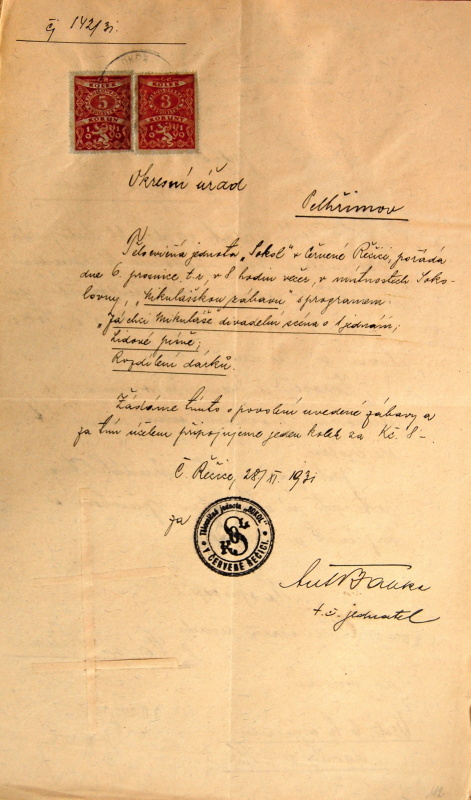 Čj 142/31.
KOLEK KOLEK
5 3
KORUNY KORUNY
Okresní úřad
Pelhřimov
Tělocvičná jednota „Sokol" v Červené Řečici, pořádá
dne 6. prosince t.r. v 8 hodin večer, v místnostech Soko-
lovny, „Mikulášskou zábavu" s programem:
„Já chci Mikuláše" divadelní scéna o 1 jednání,
Lidové písně;
Rozdílení dárků.
Žádáme tímto o povolení uvedené zábavy a
za tím účelem připojujeme jeden kolek za Kč. 8-.
Č Řečice, 28/XI. 1931
za
Tělocvičná jednota „SOKOL"
V ČERVENÉ ŘEČICI.
SOKOL
Ant
t.č. jednatel